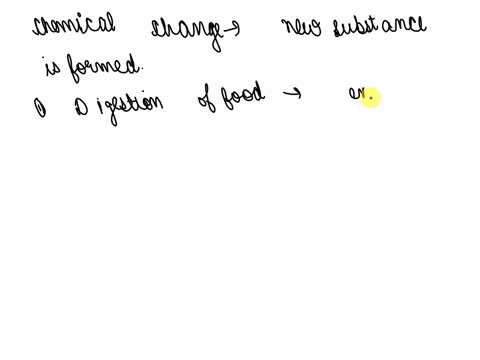 chemical change → new substance
is formed.
① Digestion of food → en